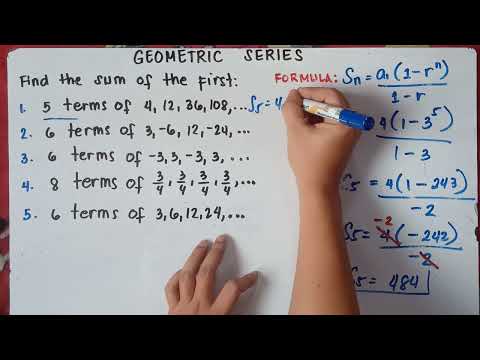 GEOMETRIC SERIES
Find the sum of the first:
1. 5 terms of 4, 12, 36, 108, ... S5 = 4
2. 6 terms of 3, -6, 12, -24, ...
3. 6 terms of -3, 3, -3, 3, ...
4. 8 terms of 3/4, 3/4, 3/4, 3/4, ...
5. 6 terms of 3, 6, 12, 24, ...
FORMULA: Sn = a1(1-r^n)/1-r
4(1-3^5)/1-3
S5 = 4(1-243)/-2
S5 = -2 4(-242)/-2
S5 = 484